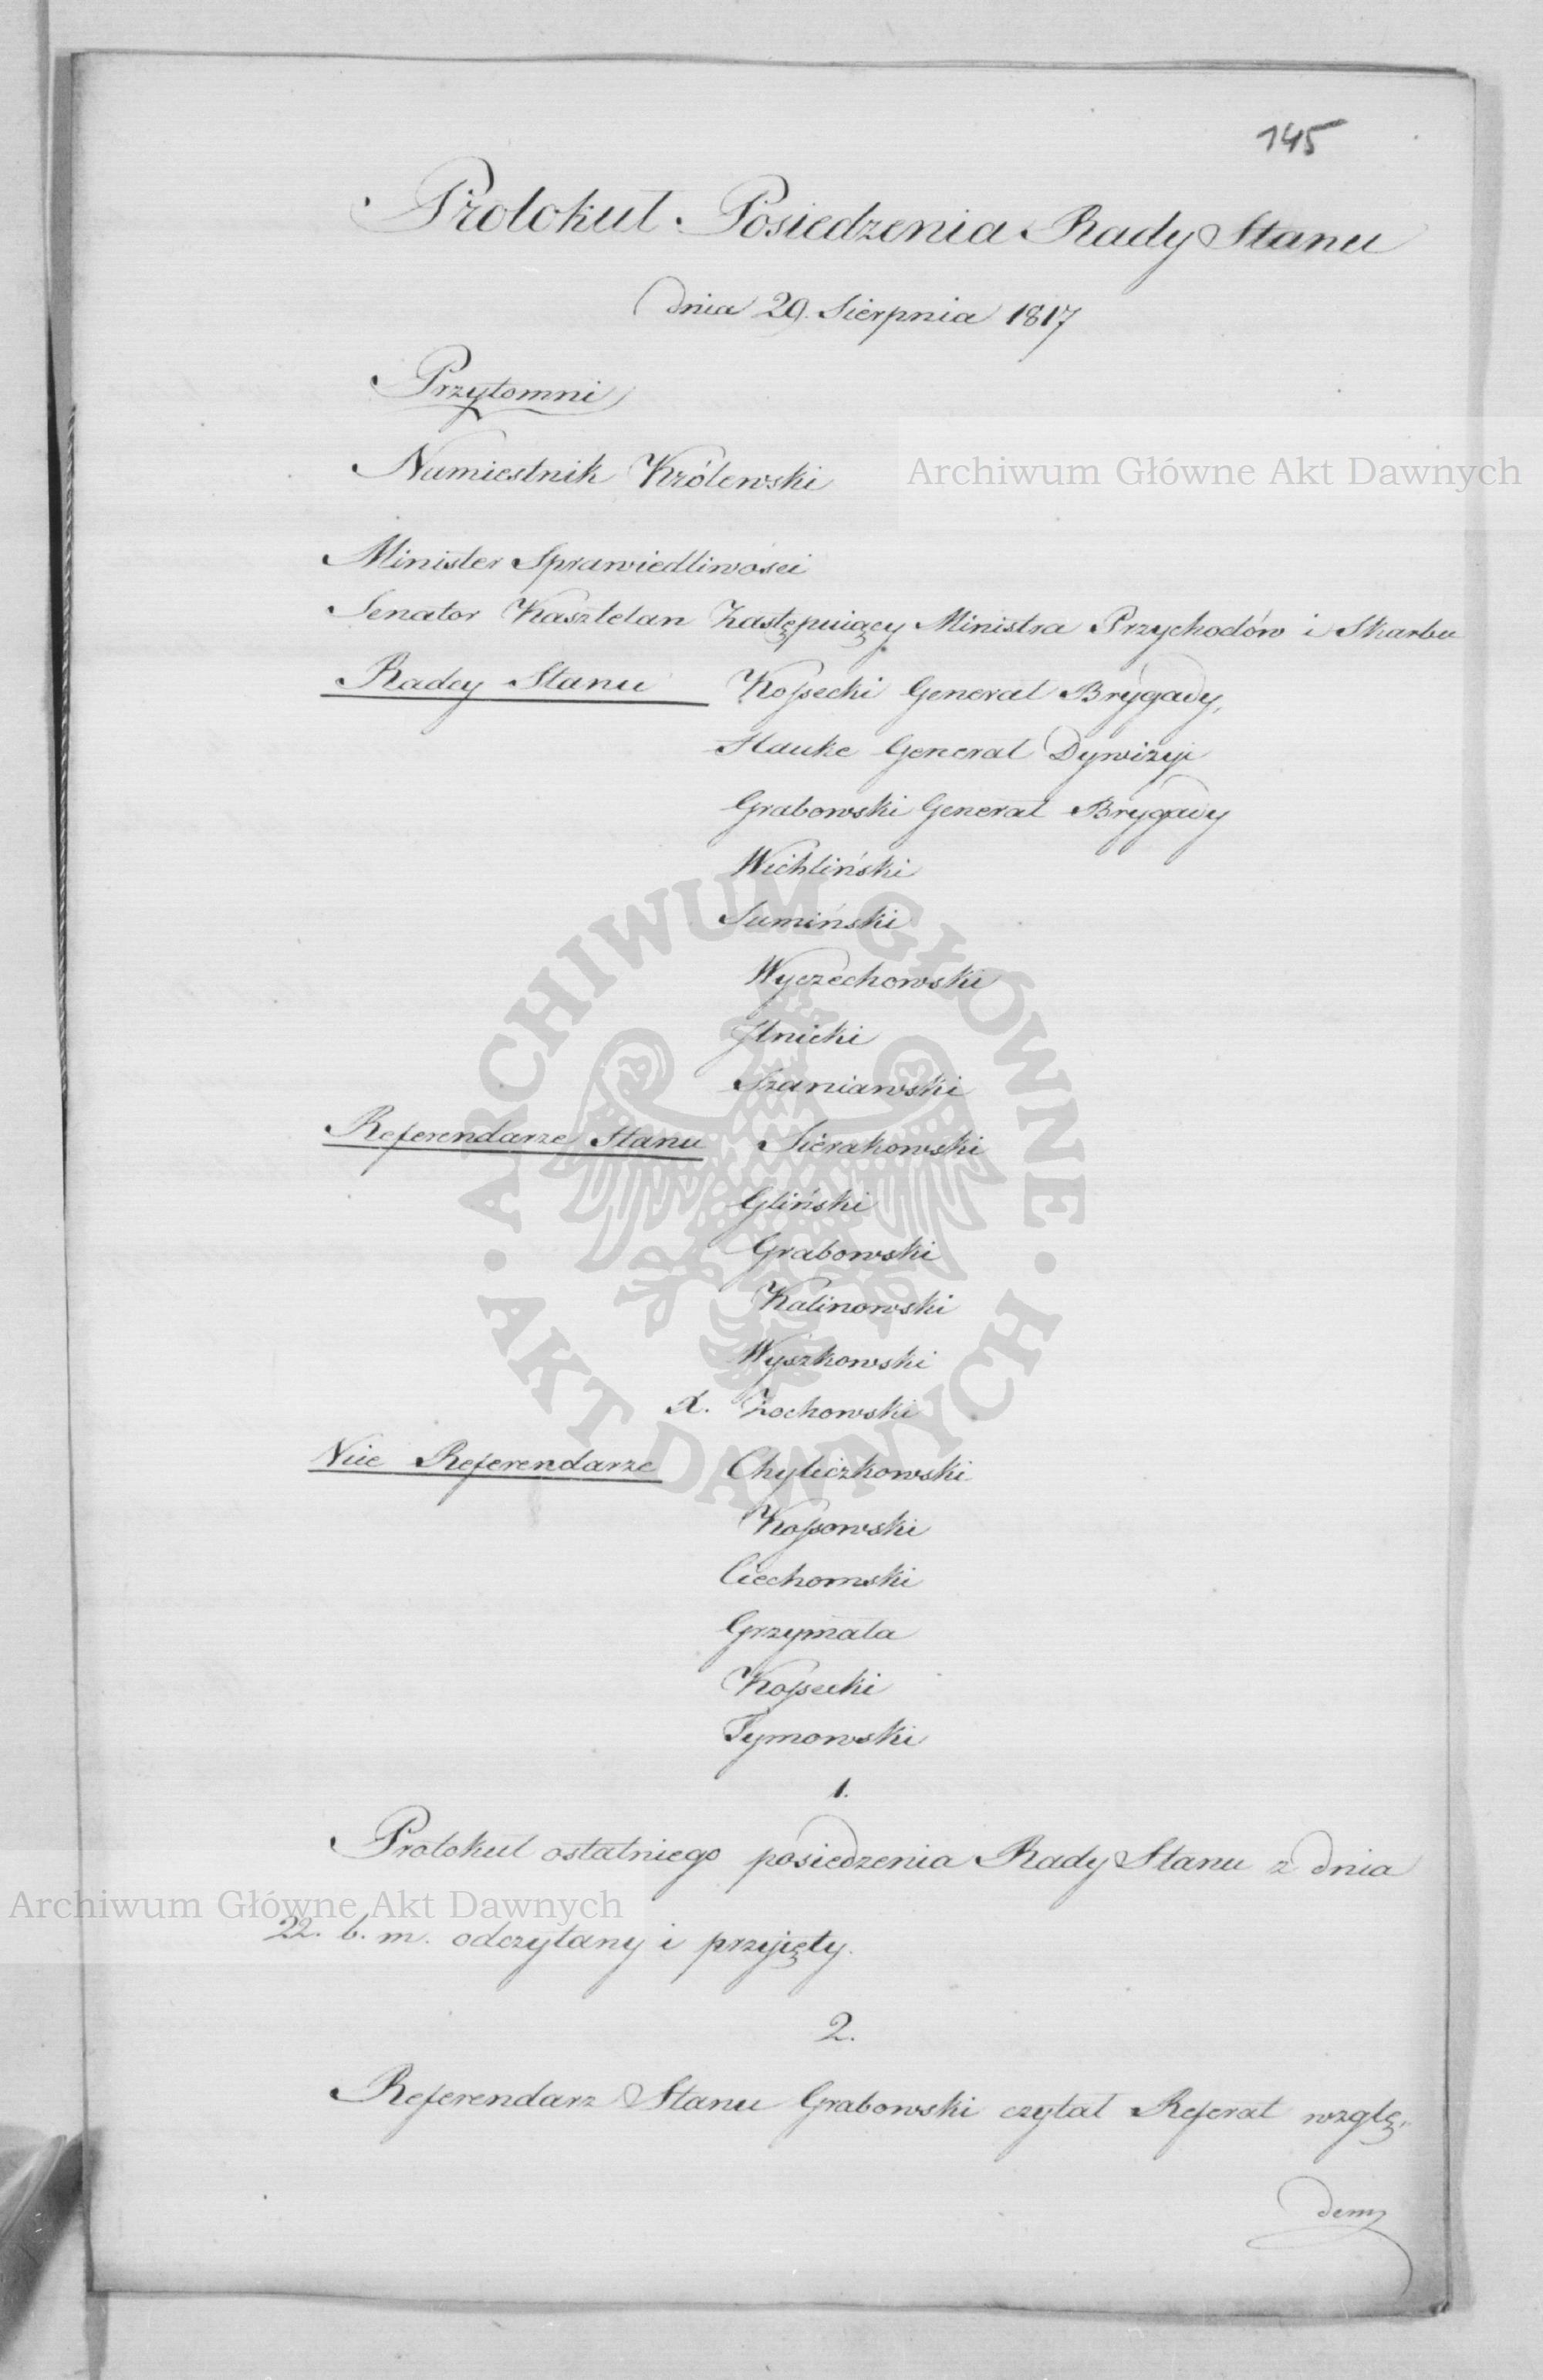 145
Protokuł Posiedzenia Rady Stanu
dnia 29. Sierpnia 1817
Przytomni
Namiestnik Królewski
Archiwum Główne Akt Dawnych
Minister Sprawiedliwości
Senator Kasztelan Zastępuiący Ministra Przychodów i Skarbu
Radcy Stanu Kossecki Generał Brygady,
Hauke Generał Dywizyi
Grabowski Generał Brygady
Wichliński
Sumiński
Wyczechowski
Ilnicki
Szaniawski
Referendarze Stanu Sierakowski
Gliński
Grabowski
Kalinowski
Wyszkowski
X. Zochowski
Vice Referendarze Chyliczkowski
Kossowski
Ciechomski
Grzymała
Kossecki
Tymowski
ARCHIWUM GŁÓWNE • AKT DAWNYCH •
1.
Protokuł ostatniego posiedzenia Rady Stanu z dnia
Archiwum Główne Akt Dawnych
22. b. m. odczytany i przyięty.
2.
Referendarz Stanu Grabowski czytał Referat wzglę„
dem